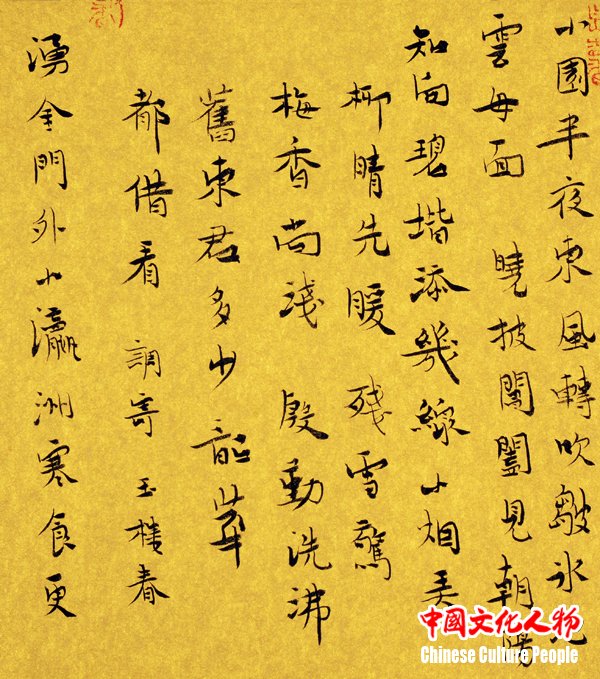 小園半夜東風轉吹皺冰池
雲母面 曉披閶闔見朝陽
知向碧堦添幾線小烟弄
柳晴先暖 残雪驚
梅香尚淺 殷動洗沸
舊東君多少韶華
都借看 調寄玉樓春
湧金門外小瀛洲寒食更
中國文化人物
Chinese Culture People